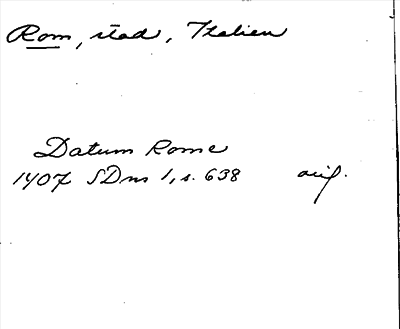 Rom, stad, Italien
Datum Rome
1407 SDns 1, s. 638 orig.